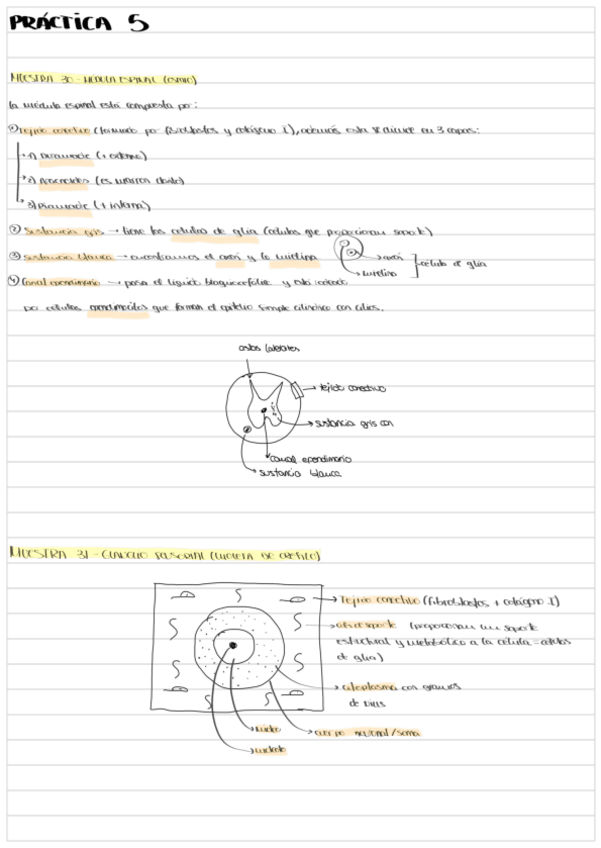 PRÁCTICA 5
MUESTRA 30 - MÉDULA ESPINAL (OSMIO)
La médula espinal está compuesta por:
① Tejido conectivo (formado por fibroblastos y colágeno I), además esta se divide en 3 capas:
1) Duramadre (+ externa)
2) Aracnoides (es marrón clarito)
3) Piamadre (+ interna)
② Sustancia gris → tiene las células de glía (células que proporcionan soporte)
③ Sustancia blanca → encontramos el axón y la mielina
→ axón
→ mielina
célula de glía
④ Canal ependimario → pasa el líquido y está
por células que forman el epitelio simple cilíndrico con cilios.
astas laterales
→ tejido conectivo
→ sustancia gris con
→ canal ependimario
→ sustancia blanca
MUESTRA 31 - GANGLIO
→ Tejido conectivo (fibroblastos + colágeno I)
(proporcionan un soporte
estructural y metabólico a la célula = células
de glía)
→ citoplasma con grumos
de Nissl
→ núcleo
→ cuerpo neuronal / soma
→ nucleolo